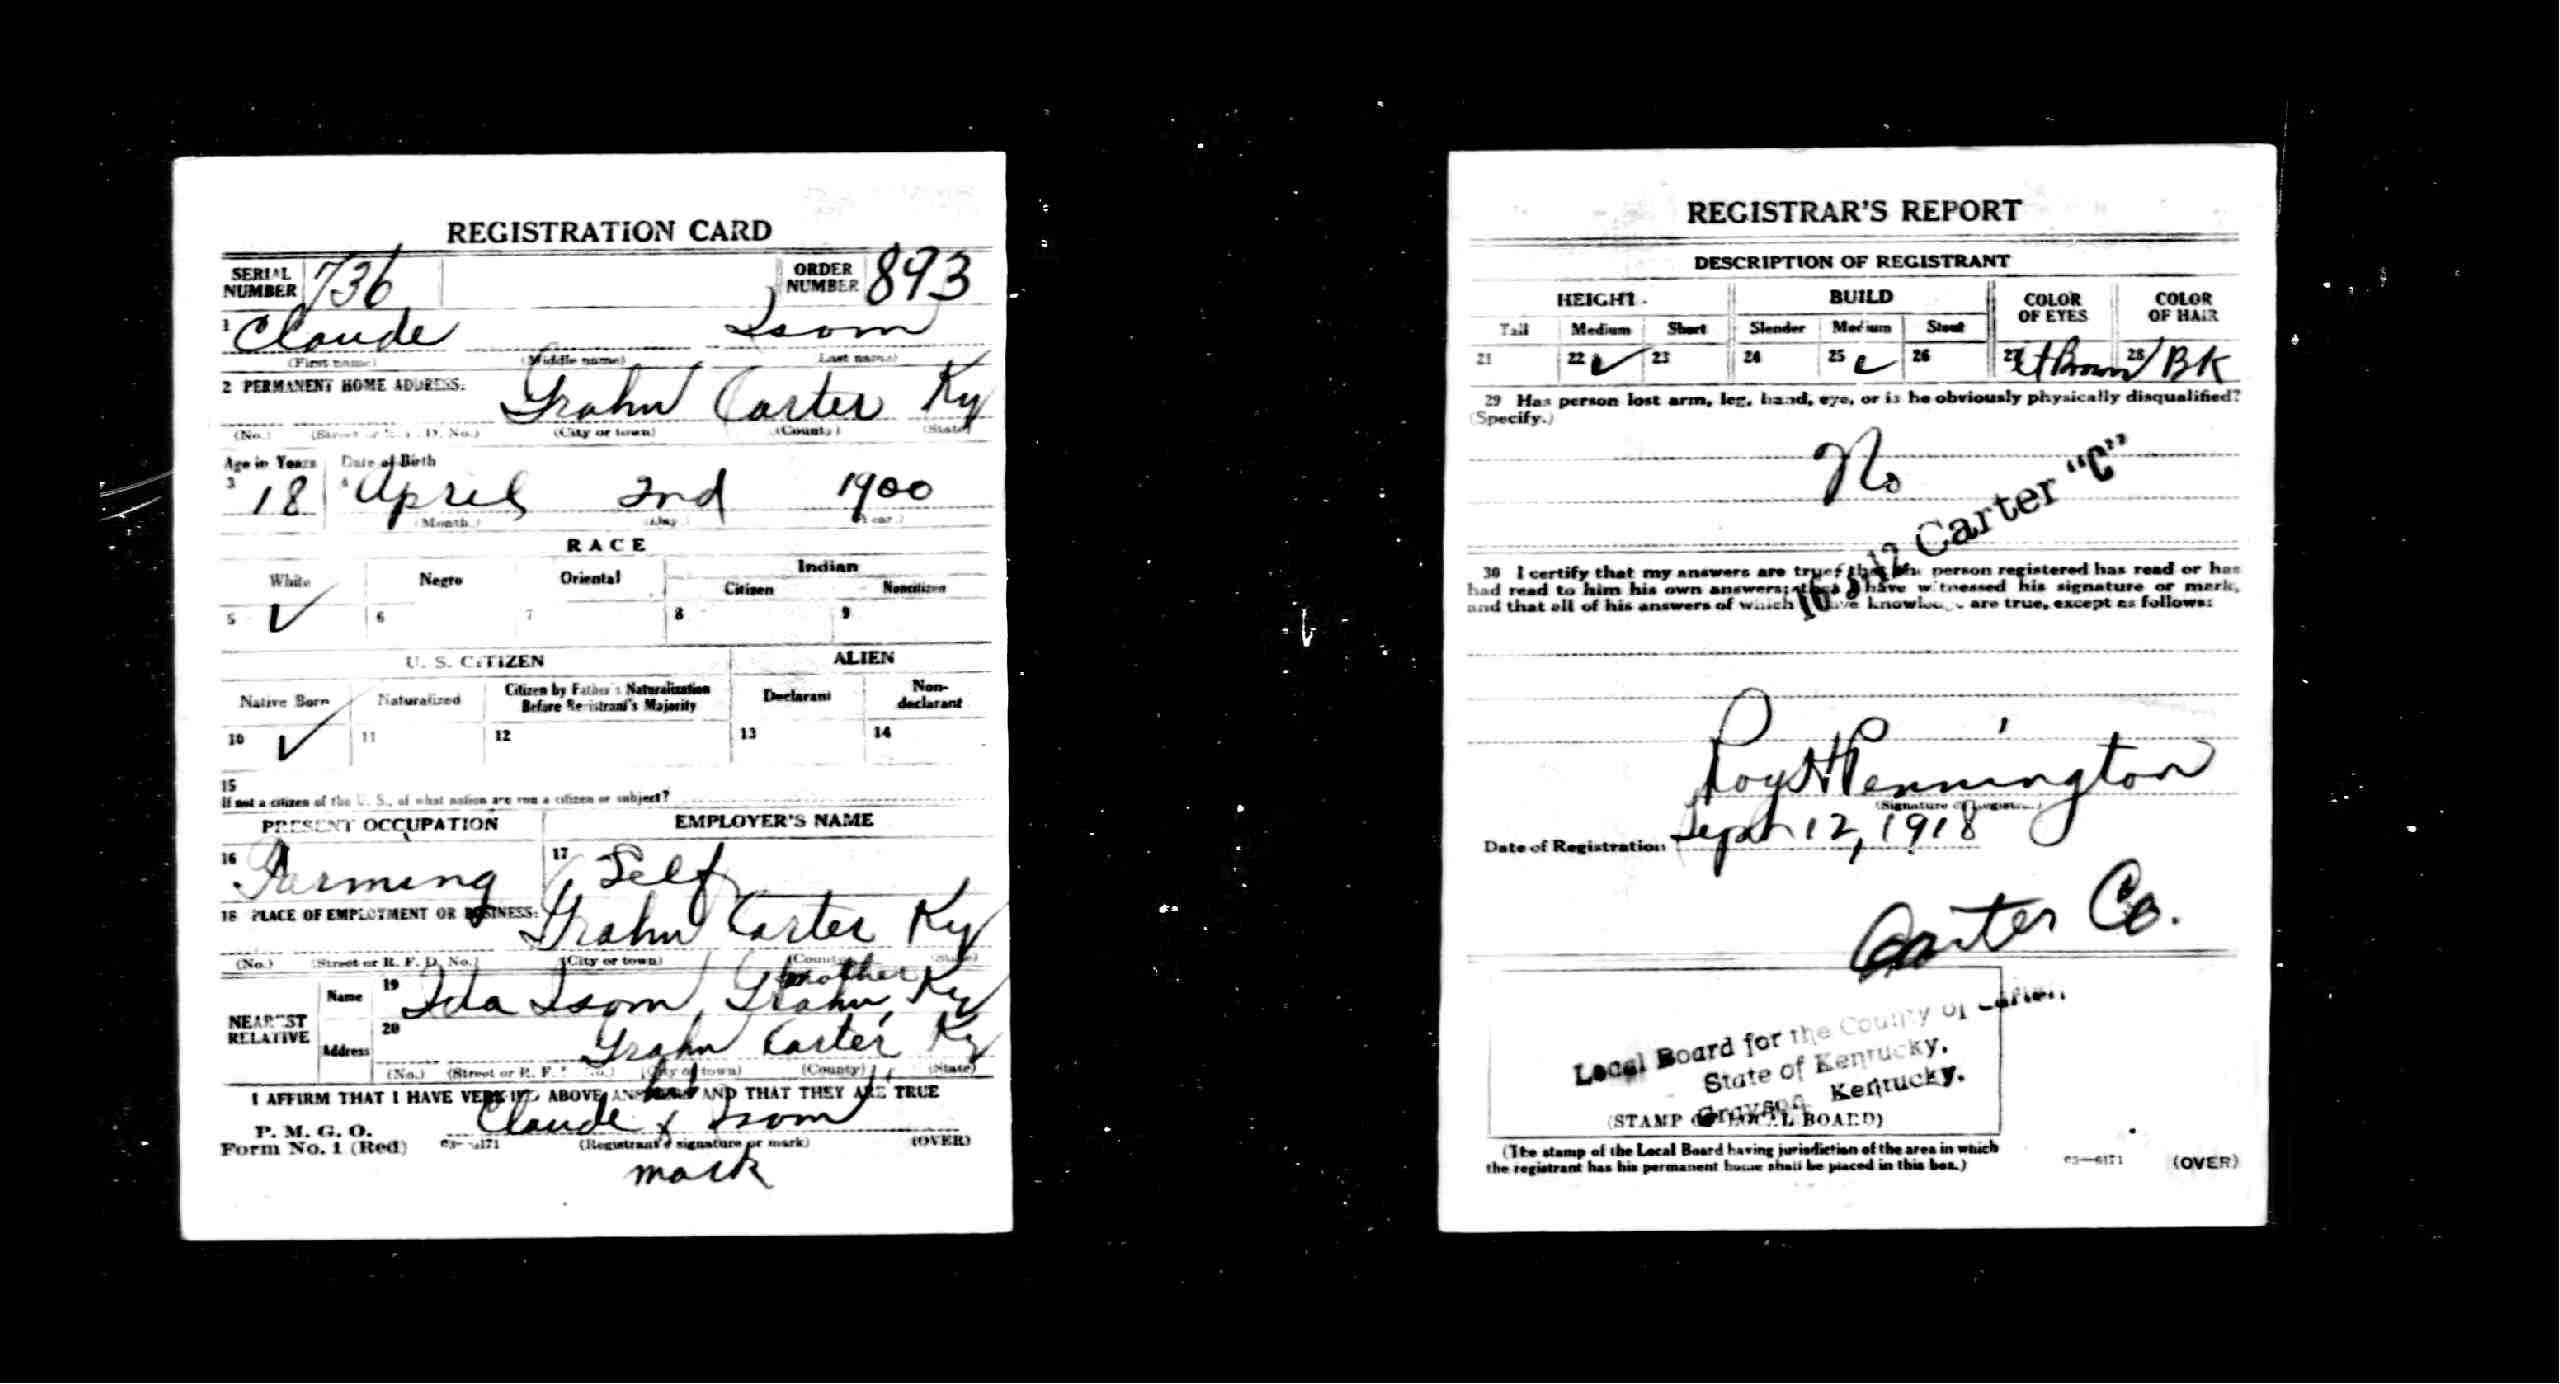 REGISTRATION CARD
SERIAL NUMBER 736 ORDER NUMBER 893
1 Claude Isom
(First name) (Middle name) Last name)
2 PERMANENT HOME ADDRESS:
Grahn Carter Ky
(No.) (Street or R. F. D. No.) (City or town) (County) (State)
Age in Years Date of Birth
3 18 4 April 2nd 1900
(Month.) (Day.) (Year.)
RACE
White Negro Oriental Indian
Citizen Noncitizen
5 ✓ 6 7 8 9
U. S. CITIZEN ALIEN
Native Born Naturalized Citizen by Father's Naturalization Before Registrant's Majority Declarant Non-declarant
10 ✓ 11 12 13 14
15
If not a citizen of the U. S., of what nation are you a citizen or subject?
PRESENT OCCUPATION EMPLOYER'S NAME
16 Farming 17 Self
18 PLACE OF EMPLOYMENT OR BUSINESS:
Grahn Carter Ky
(No.) (Street or R. F. D. No.) (City or town) (County) (State)
mother
NEAREST RELATIVE Name 19 Ida Isom Grahn, Ky
Address 20 Grahn Carter Ky
(No.) (Street or R. F. D. No.) (City or town) (County) (State)
I AFFIRM THAT I HAVE VERIFIED ABOVE ANSWERS AND THAT THEY ARE TRUE
his
Claude x Isom
P. M. G. O.
Form No. 1 (Red) 03—6171 (Registrant's signature or mark) (OVER)
mark
REGISTRAR'S REPORT
DESCRIPTION OF REGISTRANT
HEIGHT BUILD COLOR OF EYES COLOR OF HAIR
Tall Medium Short Slender Medium Stout
21 22 ✓ 23 24 25 ✓ 26 27 Lt Brown 28 BK
29 Has person lost arm, leg, hand, eye, or is he obviously physically disqualified?
(Specify.)
No
Carter "C"
30 I certify that my answers are true; that the person registered has read or has
had read to him his own answers; that I have witnessed his signature or mark,
and that all of his answers of which I have knowledge are true, except as follows:
Roy H Pennington
(Signature of Registrar)
Date of Registration Sept 12, 1918
Carter Co.
Local Board for the County of Carter,
State of Kentucky.
Grayson, Kentucky.
(STAMP OF LOCAL BOARD)
(The stamp of the Local Board having jurisdiction of the area in which
the registrant has his permanent home shall be placed in this box.)
03—6171 (OVER)